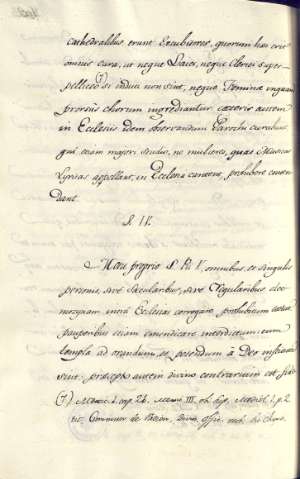 cathedralibus erunt Excubitores, quorum hæc erit
omnis cura, ut neque Laici, neque Clerici super-
pelliceo si induti non sint, neque Feminæ unquam
prorsus chorum ingrediantur cæteris autem
in Ecclesiis idem observandum Parochi curabunt
qui etiam majori studio, ne mulieres, quas Musicas
Lyricas appellant, in Ecclesia canerent, prohibere
dant.
§. II.
Motu proprio S. Pii V. omnibus, et singulis
personis, sive sæcularibus, sive Regularibus elee-
mosynam intra Ecclesias corrogare, prohibitum
pauperibus etiam mendicare interdictum: cum
templa ad orandum, et petendum à Deo
sint, præcepto autem divino contrarium est
(7) cap. 26. III.
de Divin. Offic.